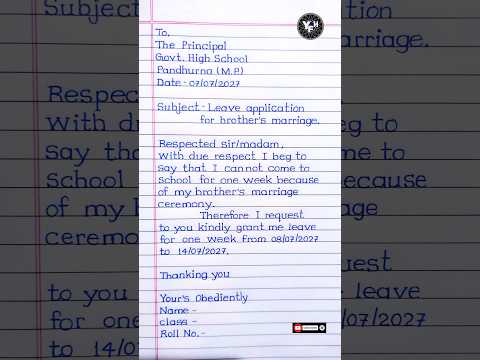 To,
The Principal
Govt. High School
Pandhurna (M.P.)
Date - 07/07/2027
Subject - Leave application
for brother's marriage.
Respected sir/madam,
With due respect I beg to
say that I cannot come to
school for one week because
of my brother's marriage
ceremony.
Therefore I request
to you kindly grant me leave
for one week from 08/07/2027
to 14/07/2027.
Thanking you
Your's Obediently
Name -
class -
Roll No. -